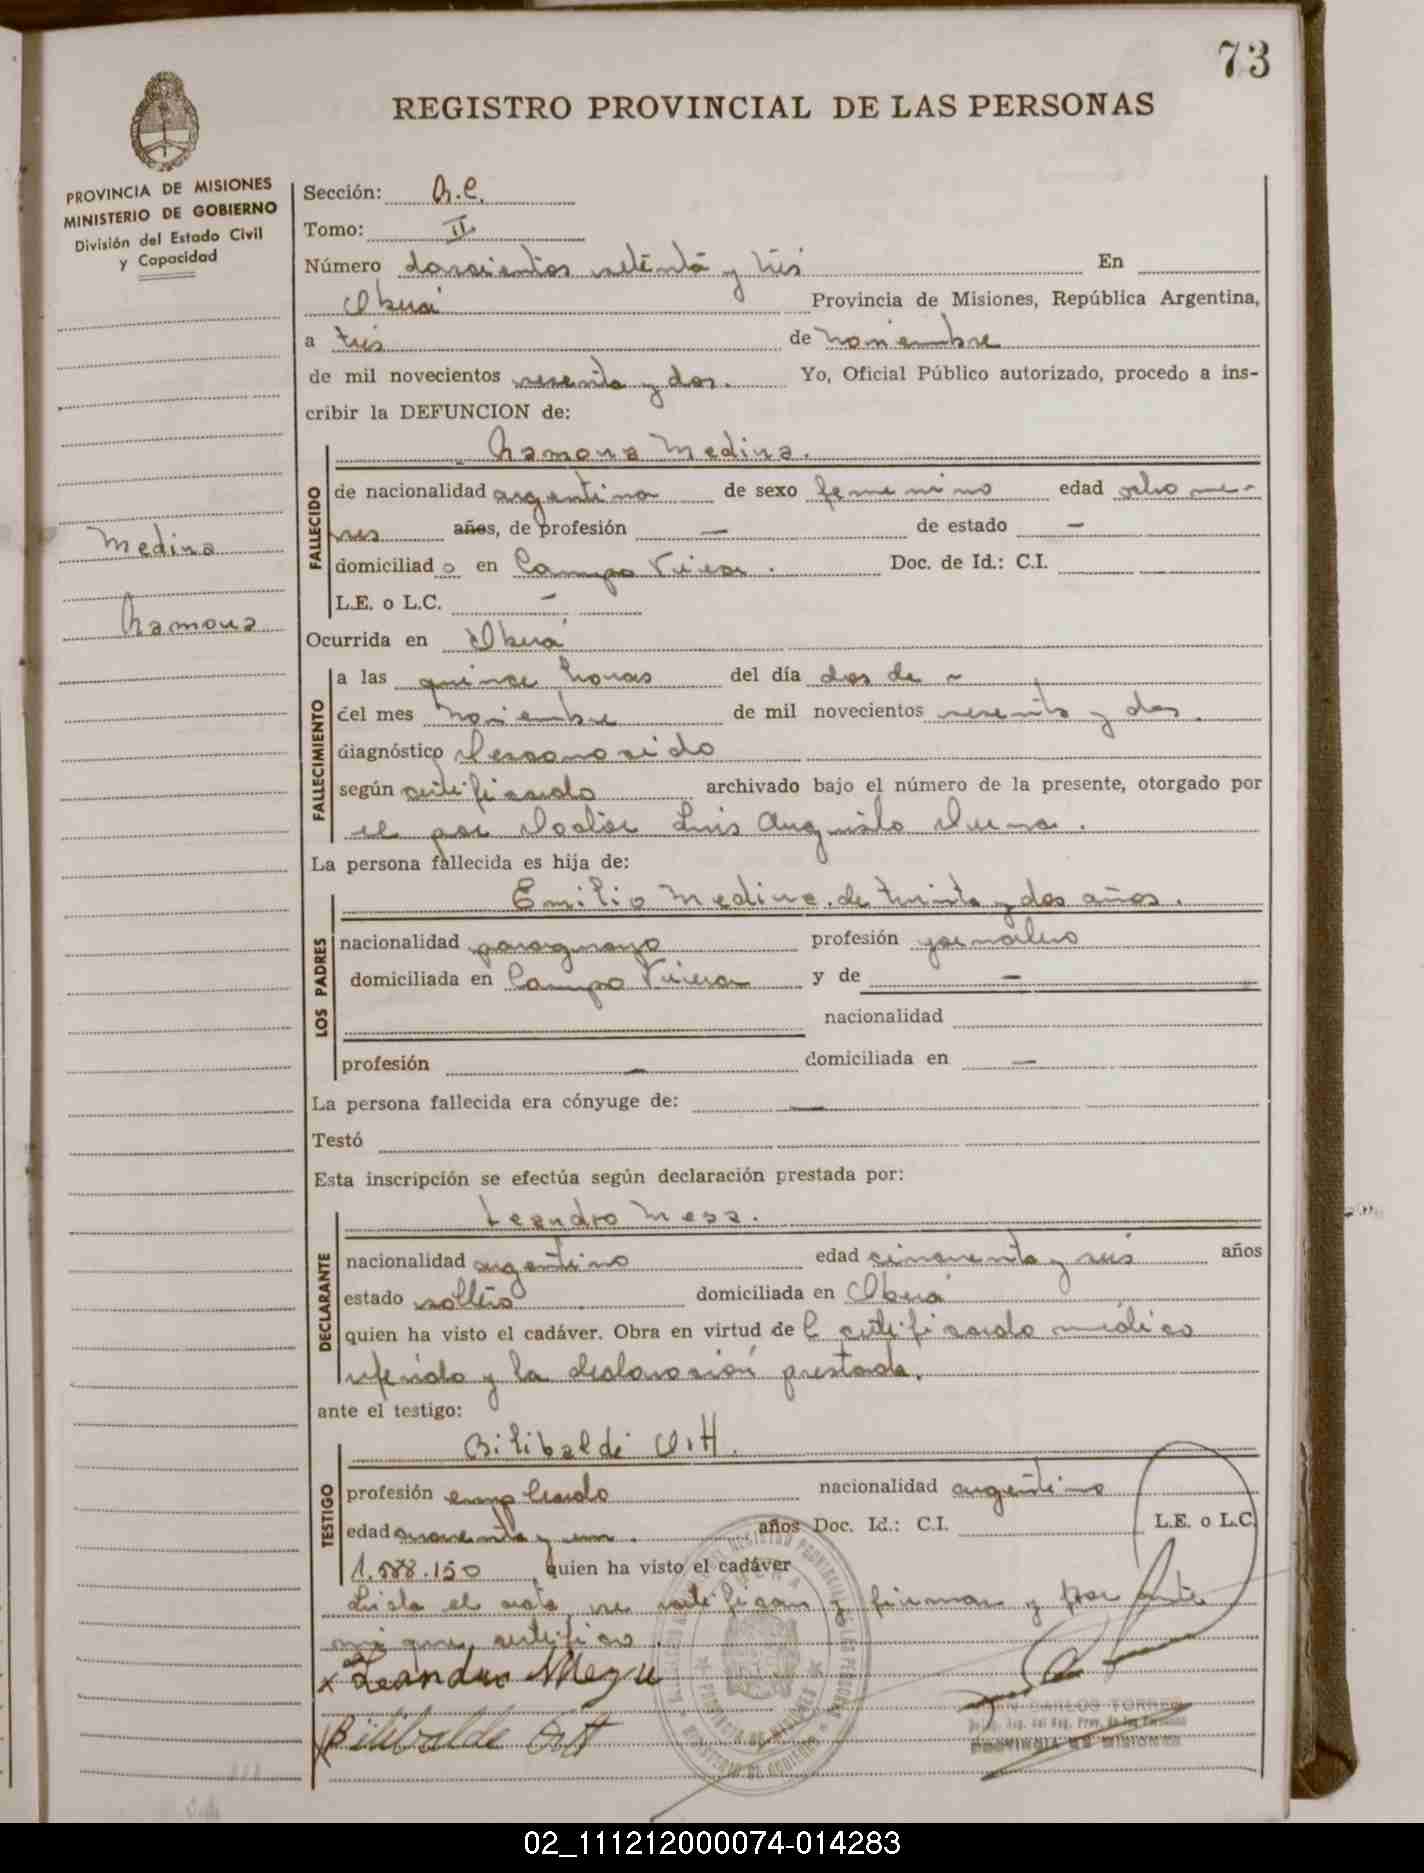 73
REGISTRO PROVINCIAL DE LAS PERSONAS
PROVINCIA DE MISIONES
MINISTERIO DE GOBIERNO
División del Estado Civil
y Capacidad
Medina
Ramona
Sección:
Tomo: II
Número doscientos setenta y tres En
Oberá Provincia de Misiones, República Argentina,
a tres de noviembre
de mil novecientos sesenta y dos. Yo, Oficial Público autorizado, procedo a ins-
cribir la DEFUNCION de:
Ramona Medina.
FALLECIDO
de nacionalidad argentina de sexo femenino edad ocho me-
ses años, de profesión — de estado —
domiciliado en Campo Viera. Doc. de Id.: C.I.
L.E. o L.C. —
Ocurrida en Oberá
FALLECIMIENTO
a las quince horas del día dos de
del mes noviembre de mil novecientos sesenta y dos.
diagnóstico Desconocido
según certificado archivado bajo el número de la presente, otorgado por
el por Doctor Luis Augusto
La persona fallecida es hija de:
LOS PADRES
Emilio Medina, de treinta y dos años.
nacionalidad paraguayo profesión jornalero
domiciliada en Campo Viera y de —
nacionalidad
profesión — domiciliada en —
La persona fallecida era cónyuge de: —
Testó
Esta inscripción se efectúa según declaración prestada por:
DECLARANTE
Leandro Meza.
nacionalidad argentino edad cincuenta y seis años
estado soltero domiciliada en Oberá
quien ha visto el cadáver. Obra en virtud del certificado médico
referido y la declaración prestada.
ante el testigo:
TESTIGO
Bilibalde Ott.
profesión empleado nacionalidad argentino
edad cuarenta y un. años Doc. Id.: C.I. L.E. o L.C.
quien ha visto el cadáver
Leída el acta, se ratifican y firman y por ante
mi que certifico.
x Leandro Meza
Bilibalde Ott
PROVINCIA DE MISIONES
MINISTERIO DE GOBIERNO
CARLOS TORRES
PROVINCIA DE MISIONES
02_111212000074-014283